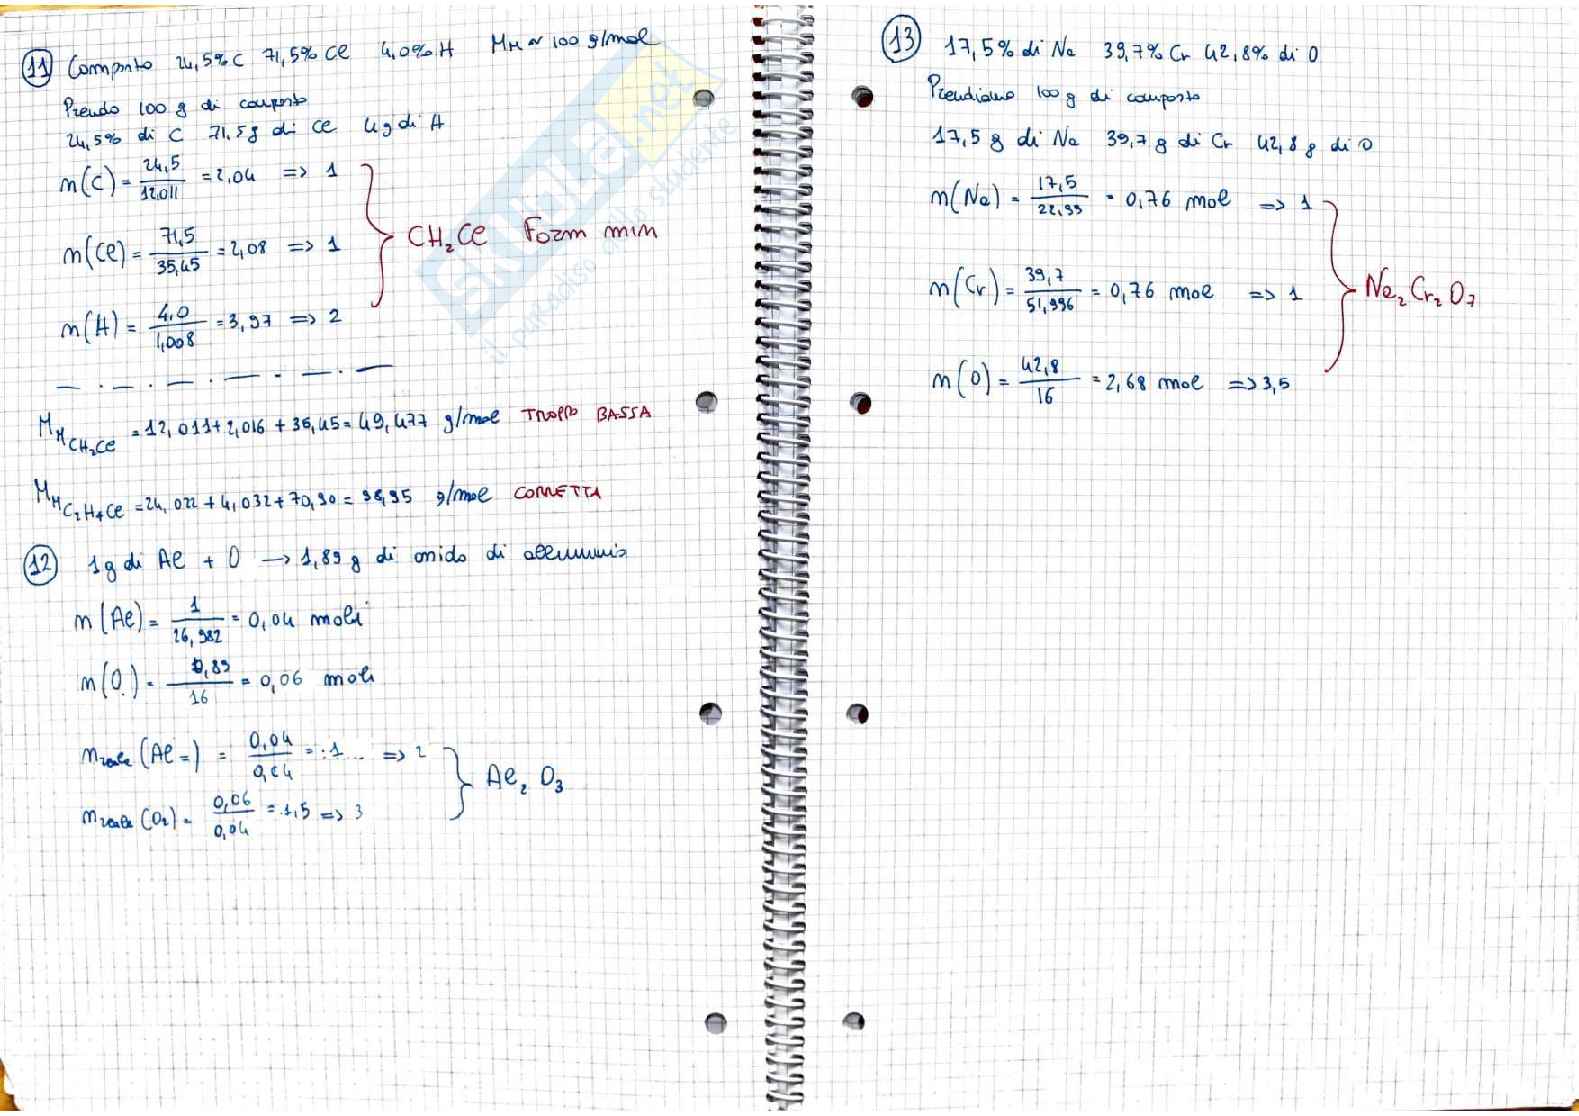 11 Composto 24,5% C 71,5% Cl 4,0% H MM ~ 100 g/mol
Prendo 100 g di composto
24,5% di C 71,5g di Cl 4g di H
n(C) = 24,5 / 12,011 = 2,04 => 1
n(Cl) = 71,5 / 35,45 = 2,08 => 1
CH₂Cl Form min
n(H) = 4,0 / 1,008 = 3,97 => 2
MM CH₂Cl = 12,011 + 2,016 + 35,45 = 49,477 g/mol TROPPO BASSA
MM C₂H₄Cl = 24,022 + 4,032 + 70,90 = 98,95 g/mol CORRETTA
12 1g di Al + O → 1,89 g di ossido di alluminio
n(Al) = 1 / 26,982 = 0,04 moli
n(O) = 0,89 / 16 = 0,06 moli
(Al =) = 0,04 / 0,04 = 1... => 2
Al₂ O₃
(O₂) = 0,06 / 0,04 = 1,5 => 3
13 17,5% di Na 39,7% Cr 42,8% di O
Prendiamo 100 g di composto
17,5 g di Na 39,7 g di Cr 42,8 g di O
n(Na) = 17,5 / 22,99 = 0,76 mol => 1
n(Cr) = 39,7 / 51,996 = 0,76 mol => 1
Na₂ Cr₂ O₇
n(O) = 42,8 / 16 = 2,68 mol => 3,5
skuola.net
il paradiso dello studente